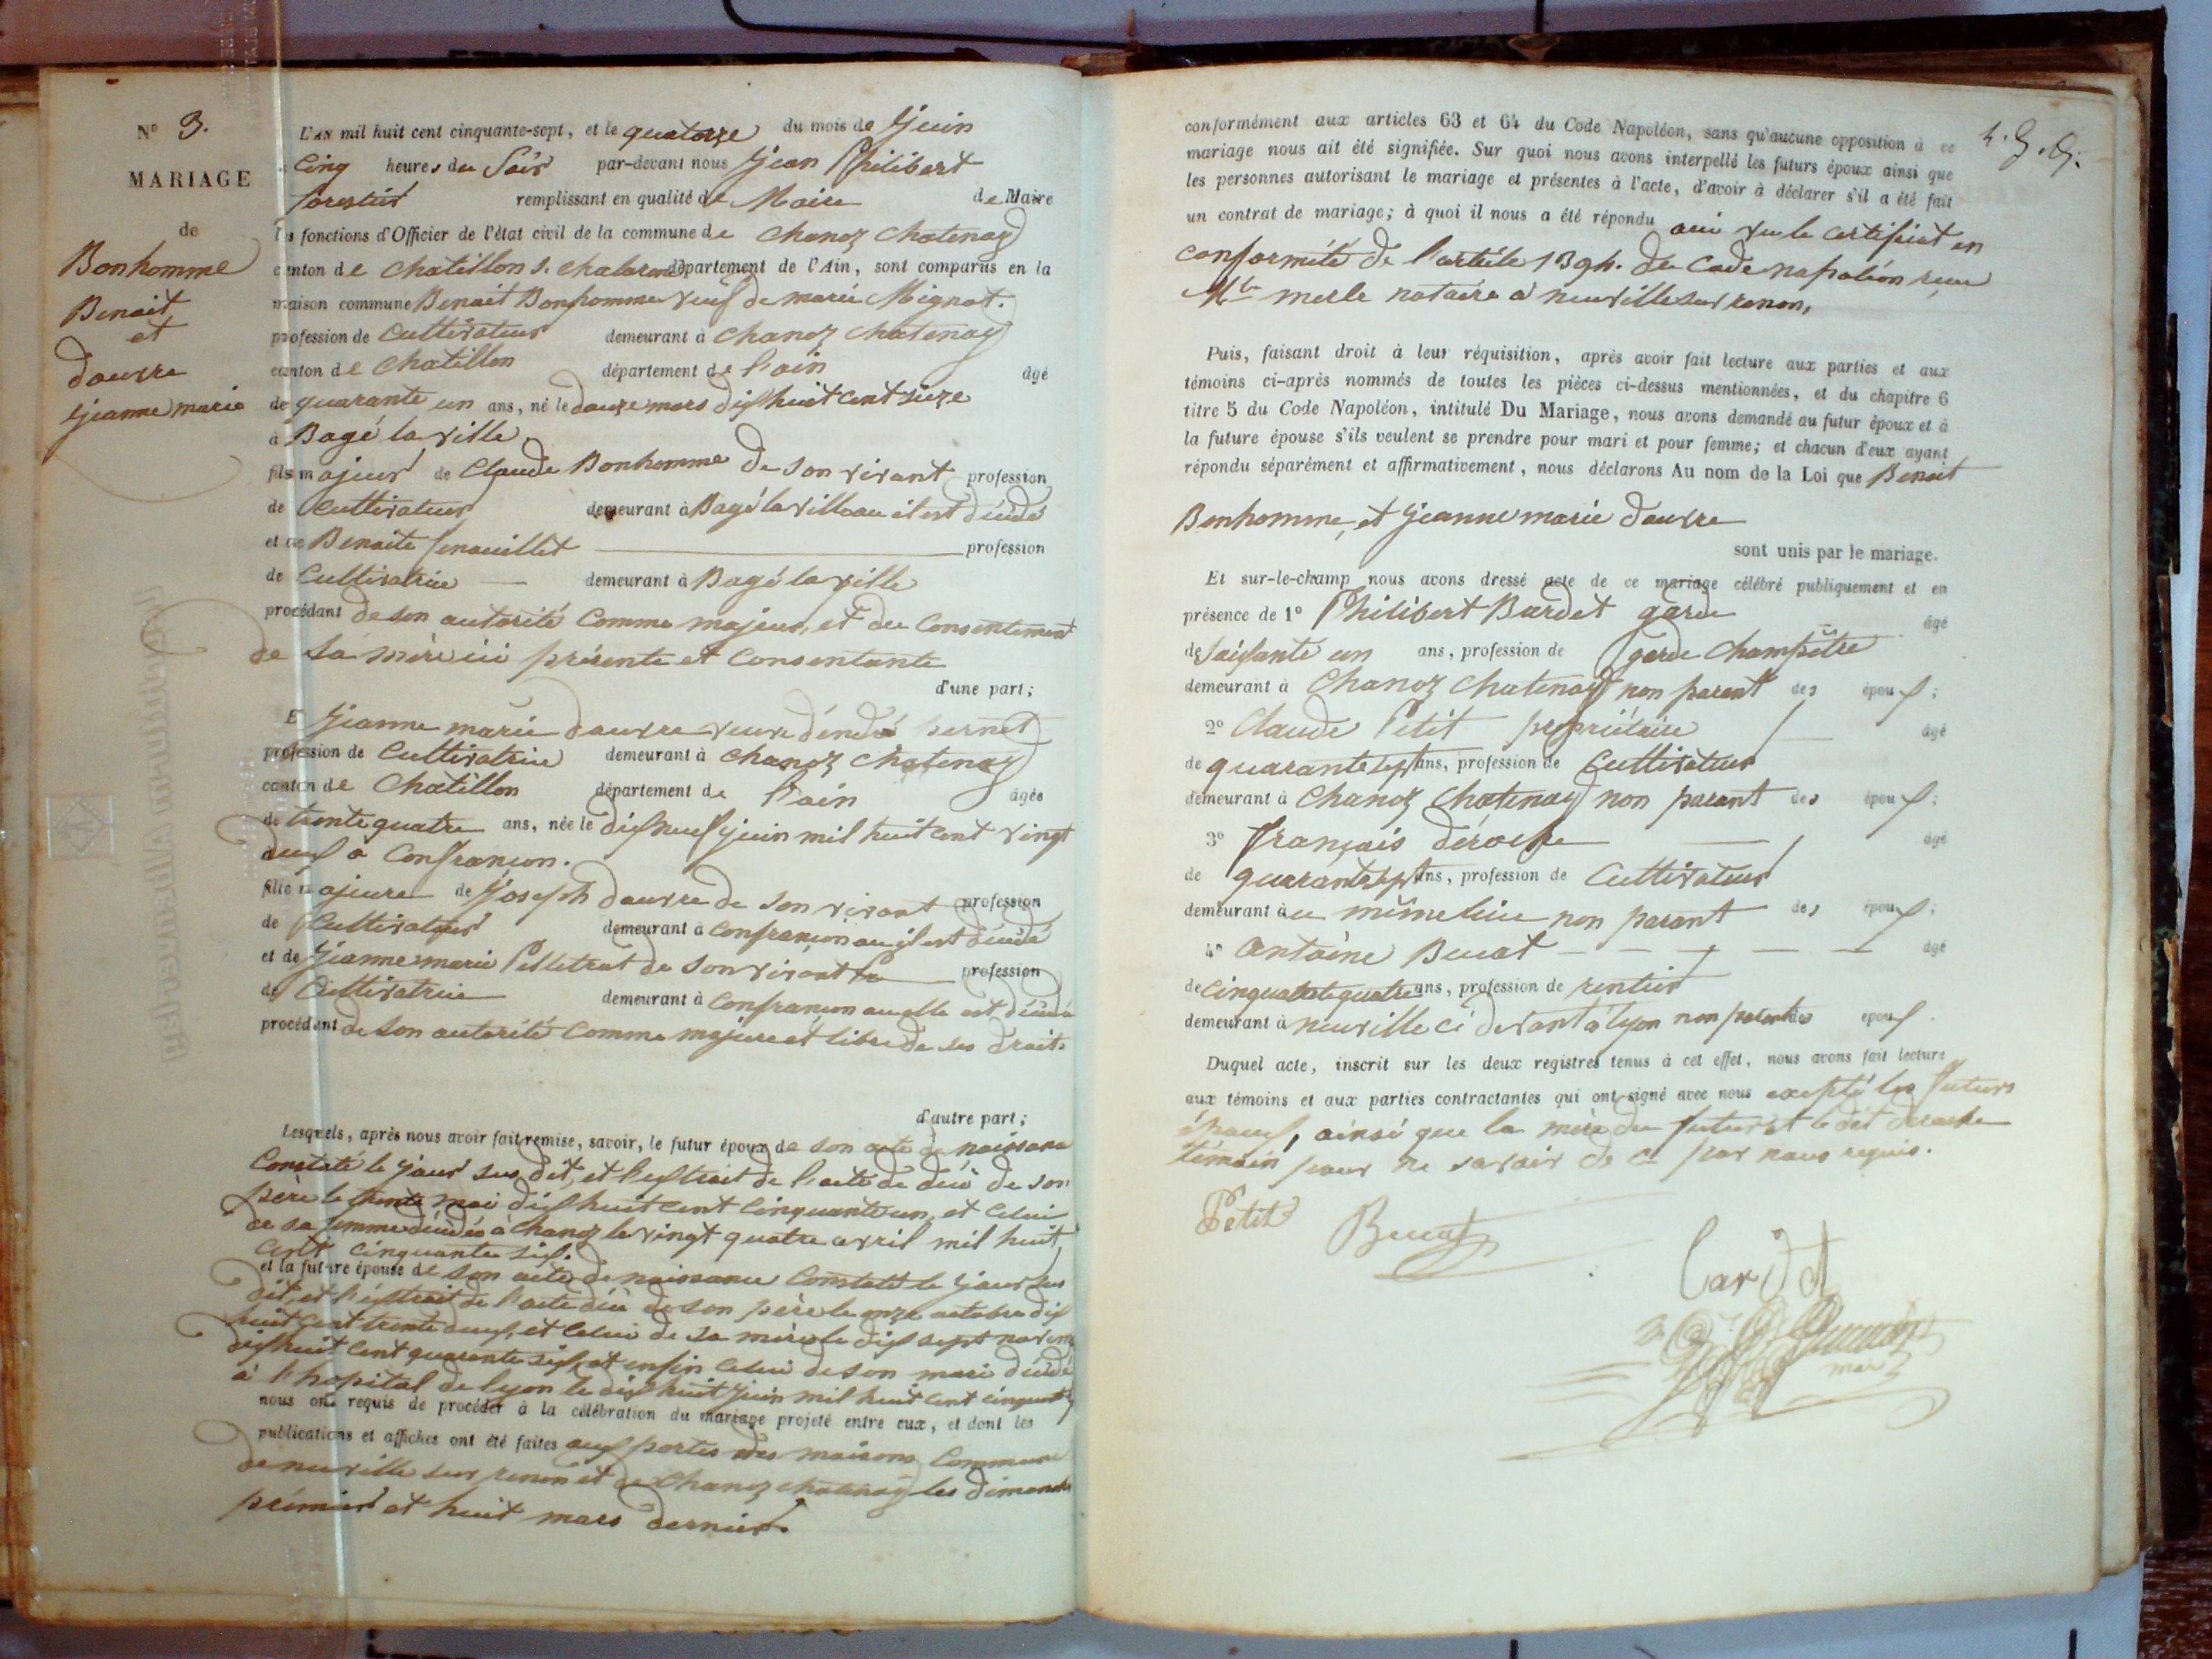 N° 3.
MARIAGE
de
Bonhomme
Benoit
et
douvre
jeanne marie
L'AN mil huit cent cinquante-sept, et le quatorze du mois de juin
cinq heures du soir par-devant nous jean Philibert
forestier remplissant en qualité de Maire de Maire
les fonctions d'Officier de l'état civil de la commune de chanoz chatenay
canton de chatillon s. chalaronne département de l'Ain, sont comparus en la
maison commune Benoit Bonhomme veuf de marie Mignot.
profession de cultivateur demeurant à chanoz chatenay
canton de chatillon département de l'ain âgé
de quarante un ans, né le douze mars dix huit cent seize
à Bagé la ville
fils majeur de Claude Bonhomme de son vivant profession
de cultivateur demeurant à Bagé la ville ou il est décédé
et de Benoite fenouillet profession
de cultivatrice demeurant à Bagé la ville
procédant de son autorité comme majeur, et du consentement
de sa mère ici présente et consentante
d'une part;
Et jeanne marie douvre veuve d'éndré pernet
profession de cultivatrice demeurant à chanoz chatenay
canton de chatillon département de l'ain âgée
de trente quatre ans, née le dix neuf juin mil huit cent vingt
deux a confrançon.
fille majeure de joseph douvre de son vivant profession
de cultivateur demeurant à confrançon ou il est décédé
et de jeanne marie Pelletrat de son vivant profession
de cultivatrice demeurant à confrançon ou elle est décédée
procédant de son autorité comme majeure et libre de ses droits
d'autre part;
Lesquels, après nous avoir fait remise, savoir, le futur époux de son acte de naissance
constaté le jour sus dit, et l'extrait de l'acte de décé de son
père le trente mai dix huit cent cinquante un, et celui
de sa femme décédée à chanoz le vingt quatre avril mil huit
cent cinquante six.
et la future épouse de son acte de naissance constaté le jour sus
dit, et l'extrait de l'acte décé de son père le onze octobre dix
huit cent trente deux, et celui de sa mère le dix sept novem
dix huit cent quarante six, et enfin celui de son mari décédé
à l'hopital de lyon le dix huit juin mil huit cent cinquante
nous ont requis de procéder à la célébration du mariage projeté entre eux, et dont les
publications et affiches ont été faites aux portes des maisons commune
de neuville sur renon et de chanoz chatenay les dimanche
prémier et huit mars dernier.
conformément aux articles 63 et 64 du Code Napoléon, sans qu'aucune opposition à ce
mariage nous ait été signifiée. Sur quoi nous avons interpellé les futurs époux ainsi que
les personnes autorisant le mariage et présentes à l'acte, d'avoir à déclarer s'il a été fait
un contrat de mariage; à quoi il nous a été répondu oui vu le certificat en
conformité de l'article 1394. du code napoléon reçu
Mtre merle notaire a neuville sur renon,
Puis, faisant droit à leur réquisition, après avoir fait lecture aux parties et aux
témoins ci-après nommés de toutes les pièces ci-dessus mentionnées, et du chapitre 6
titre 5 du Code Napoléon, intitulé Du Mariage, nous avons demandé au futur époux et à
la future épouse s'ils veulent se prendre pour mari et pour femme; et chacun d'eux ayant
répondu séparément et affirmativement, nous déclarons Au nom de la Loi que Benoit
Bonhomme, et jeanne marie douvre
sont unis par le mariage.
Et sur-le-champ nous avons dressé acte de ce mariage célébré publiquement et en
présence de 1° Philibert Bardet garde âgé
de soixante un ans, profession de garde champêtre
demeurant à chanoz chatenay non parent des époux;
2° Claude Petit propriétaire âgé
de quarante sept ans, profession de cultivateur
demeurant à chanoz chatenay non parant des époux;
3° français déroche âgé
de quarante sept ans, profession de cultivateur
demeurant à ce même lieu non parant des époux;
4° antoine Bucat âgé
de cinquante quatre ans, profession de rentier
demeurant à neuville ci devant à lyon non parent des époux.
Duquel acte, inscrit sur les deux registres tenus à cet effet, nous avons fait lecture
aux témoins et aux parties contractantes qui ont signé avec nous excepté les futurs
époux, ainsi que la mère du futur et le dit déroche
témoin pour ne savoir de ce par nous requis.
Petit
Bucat
bardet